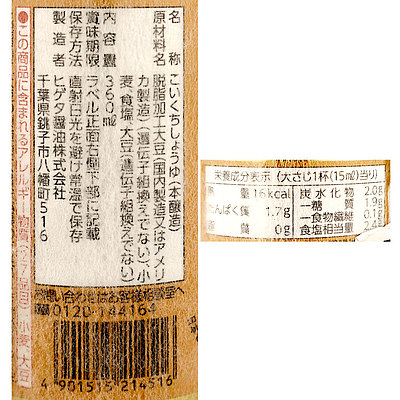 名 称 こいくちしょうゆ(本醸造)
原材料名 脱脂加工大豆(国内製造又はアメリ
カ製造)(遺伝子組換えでない)、小
麦、食塩、大豆(遺伝子組換えでない)
内 容 量 360㎖
賞味期限 ラベル正面右側下部に記載
保存方法 直射日光を避け常温で保存
製 造 者 ヒゲタ醤油株式会社
千葉県銚子市八幡町516
●この商品に含まれるアレルギー物質(27品目)：小麦、大豆
お問い合わせはお客様相談室へ
0120-144164
4 901515 214516
栄養成分表示 (大さじ1杯(15㎖)当り)
量 16kcal
たんぱく質 1.7g
質 0g
炭水化物 2.0g
―糖質 1.9g
―食物繊維 0.1g
食塩相当量 2.4